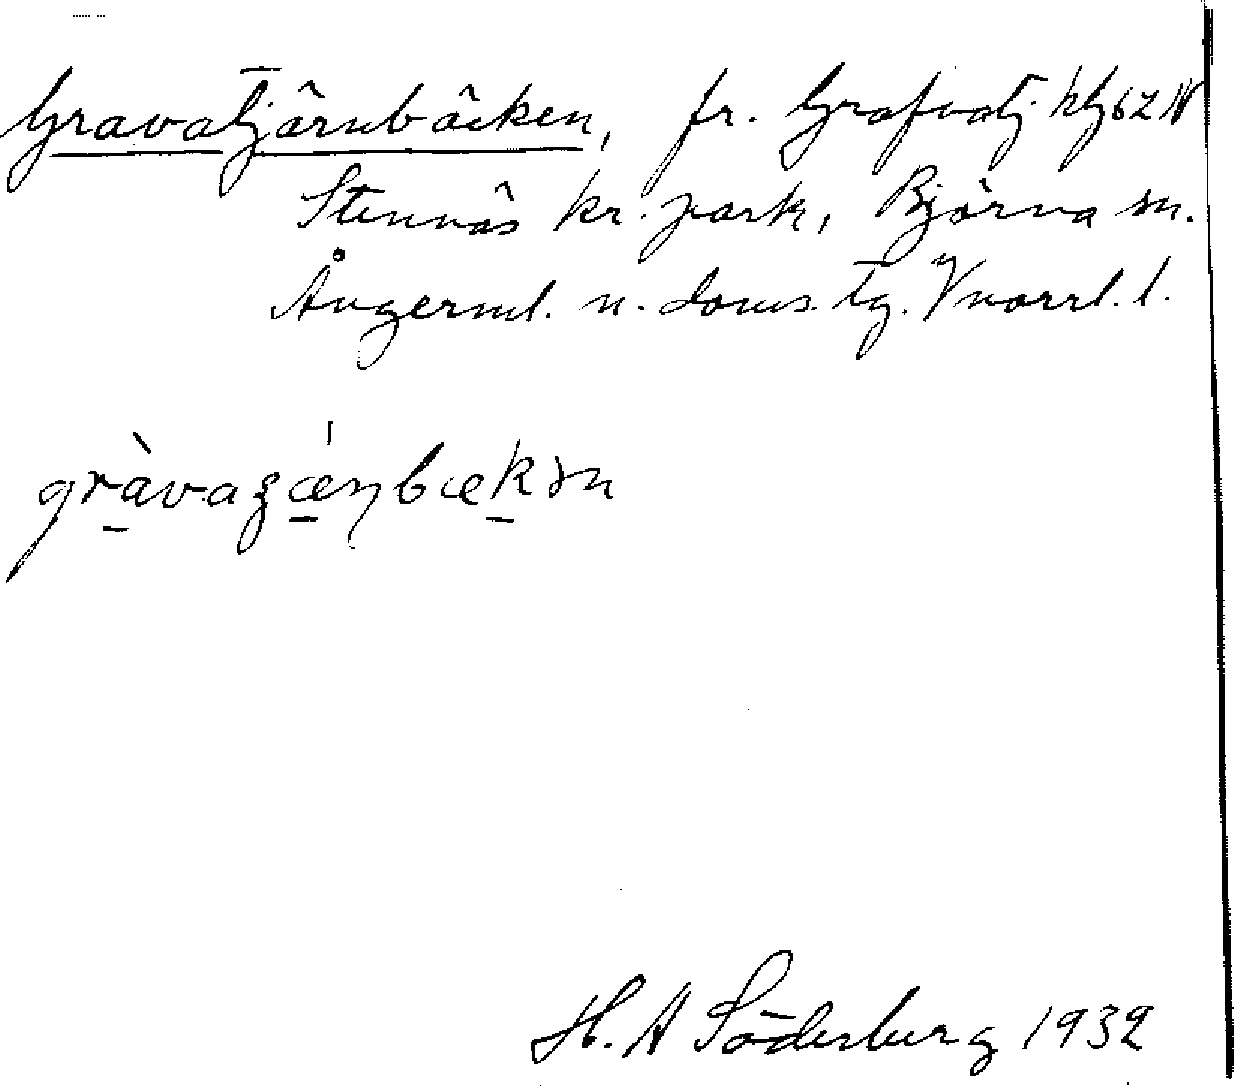 Gravatjärnbäcken, fr. Grafvatj. kfb62N
Stennäs kr. park, Björna sn.
Ångerml. n. doms. tg. Vnorrl. l.
gràvaʒǽɳbækən
H. A Söderberg 1932